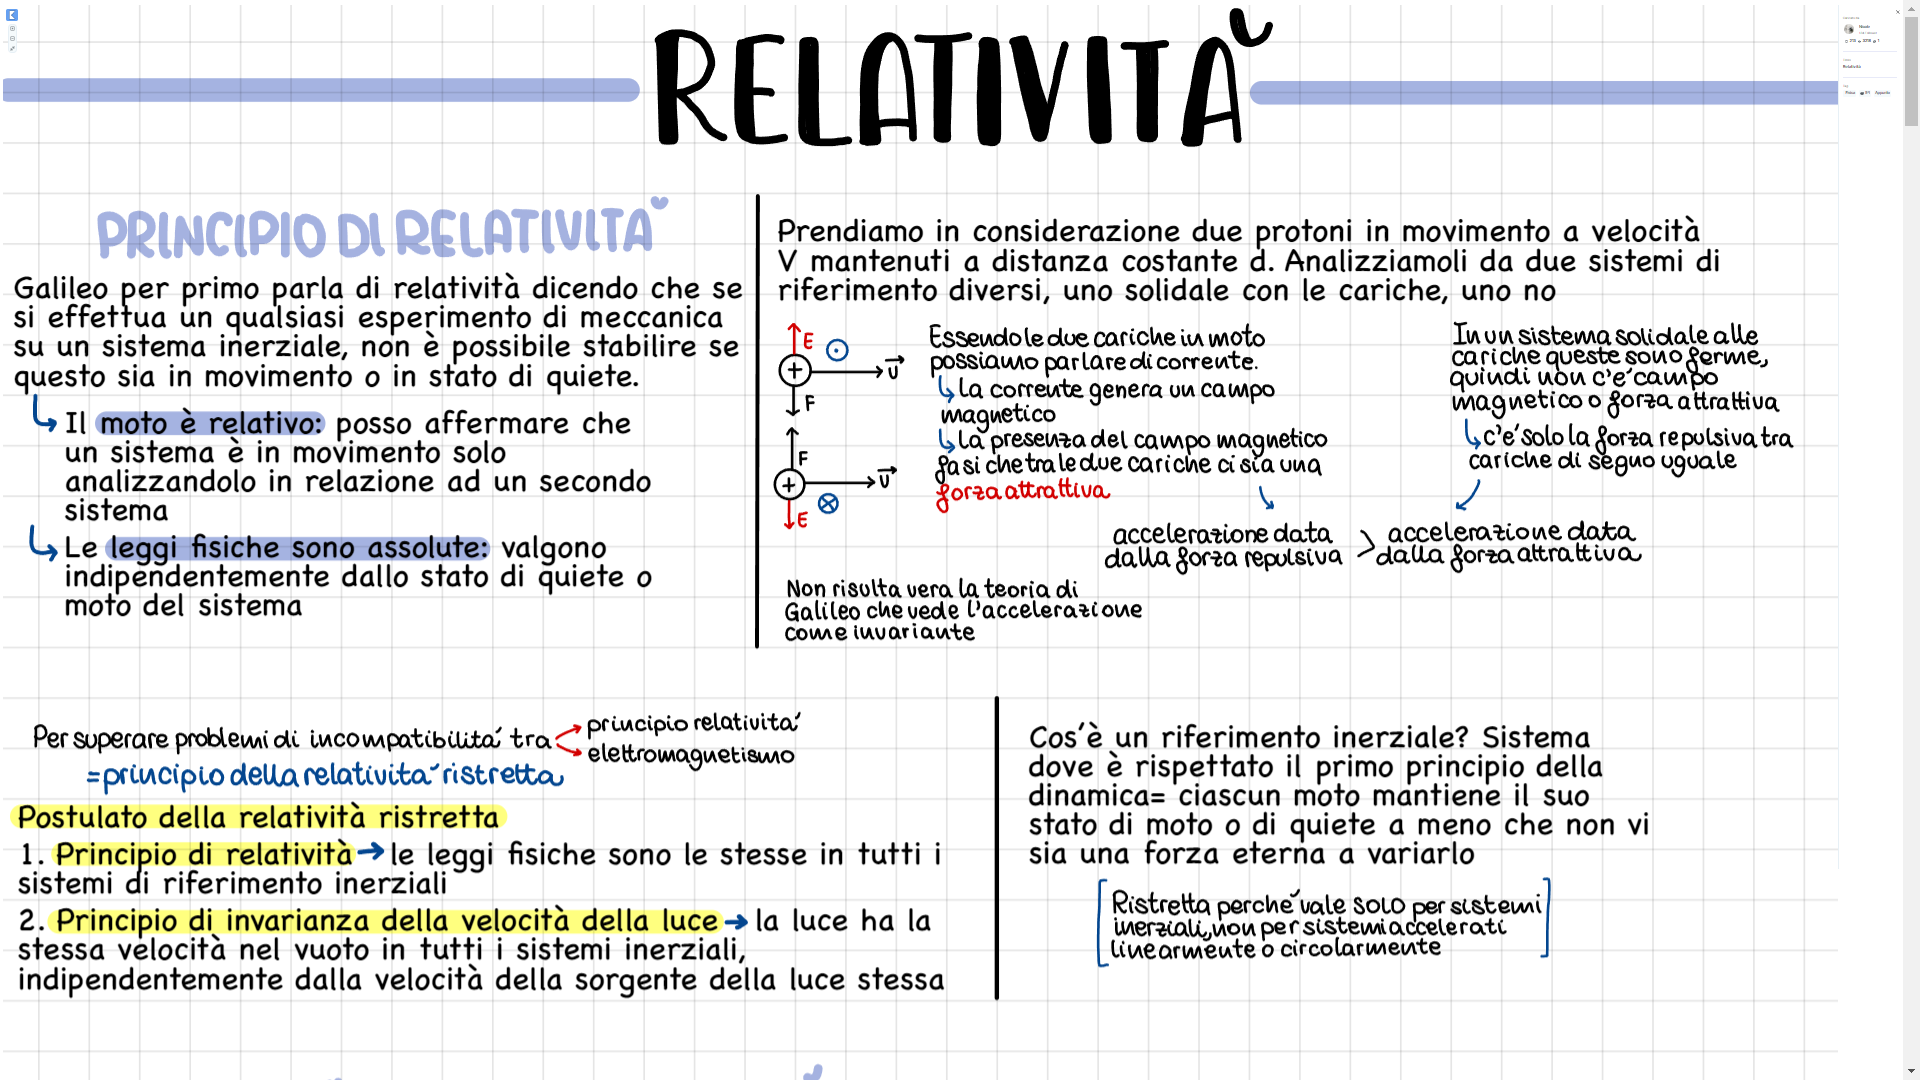 RELATIVITÀ
PRINCIPIO DI RELATIVITÀ
Galileo per primo parla di relatività dicendo che se
si effettua un qualsiasi esperimento di meccanica
su un sistema inerziale, non è possibile stabilire se
questo sia in movimento o in stato di quiete.
Il moto è relativo: posso affermare che
un sistema è in movimento solo
analizzandolo in relazione ad un secondo
sistema
Le leggi fisiche sono assolute: valgono
indipendentemente dallo stato di quiete o
moto del sistema
Prendiamo in considerazione due protoni in movimento a velocità
V mantenuti a distanza costante d. Analizziamoli da due sistemi di
riferimento diversi, uno solidale con le cariche, uno no
E
+
v
F
F
+
v
E
Essendo le due cariche in moto
possiamo parlare di corrente.
La corrente genera un campo
magnetico
La presenza del campo magnetico
fa si che tra le due cariche ci sia una
forza attrattiva
In un sistema solidale alle
cariche queste sono ferme,
quindi non c'e' campo
magnetico o forza attrattiva
c'e' solo la forza repulsiva tra
cariche di segno uguale
accelerazione data
dalla forza repulsiva
>
accelerazione data
dalla forza attrattiva
Non risulta vera la teoria di
Galileo che vede l'accelerazione
come invariante
Per superare problemi di incompatibilita' tra
principio relativita'
elettromagnetismo
=principio della relativita' ristretta
Postulato della relatività ristretta
1. Principio di relatività → le leggi fisiche sono le stesse in tutti i
sistemi di riferimento inerziali
2. Principio di invarianza della velocità della luce → la luce ha la
stessa velocità nel vuoto in tutti i sistemi inerziali,
indipendentemente dalla velocità della sorgente della luce stessa
Cos'è un riferimento inerziale? Sistema
dove è rispettato il primo principio della
dinamica= ciascun moto mantiene il suo
stato di moto o di quiete a meno che non vi
sia una forza eterna a variarlo
[Ristretta perche' vale SOLO per sistemi
inerziali, non per sistemi accelerati
linearmente o circolarmente]